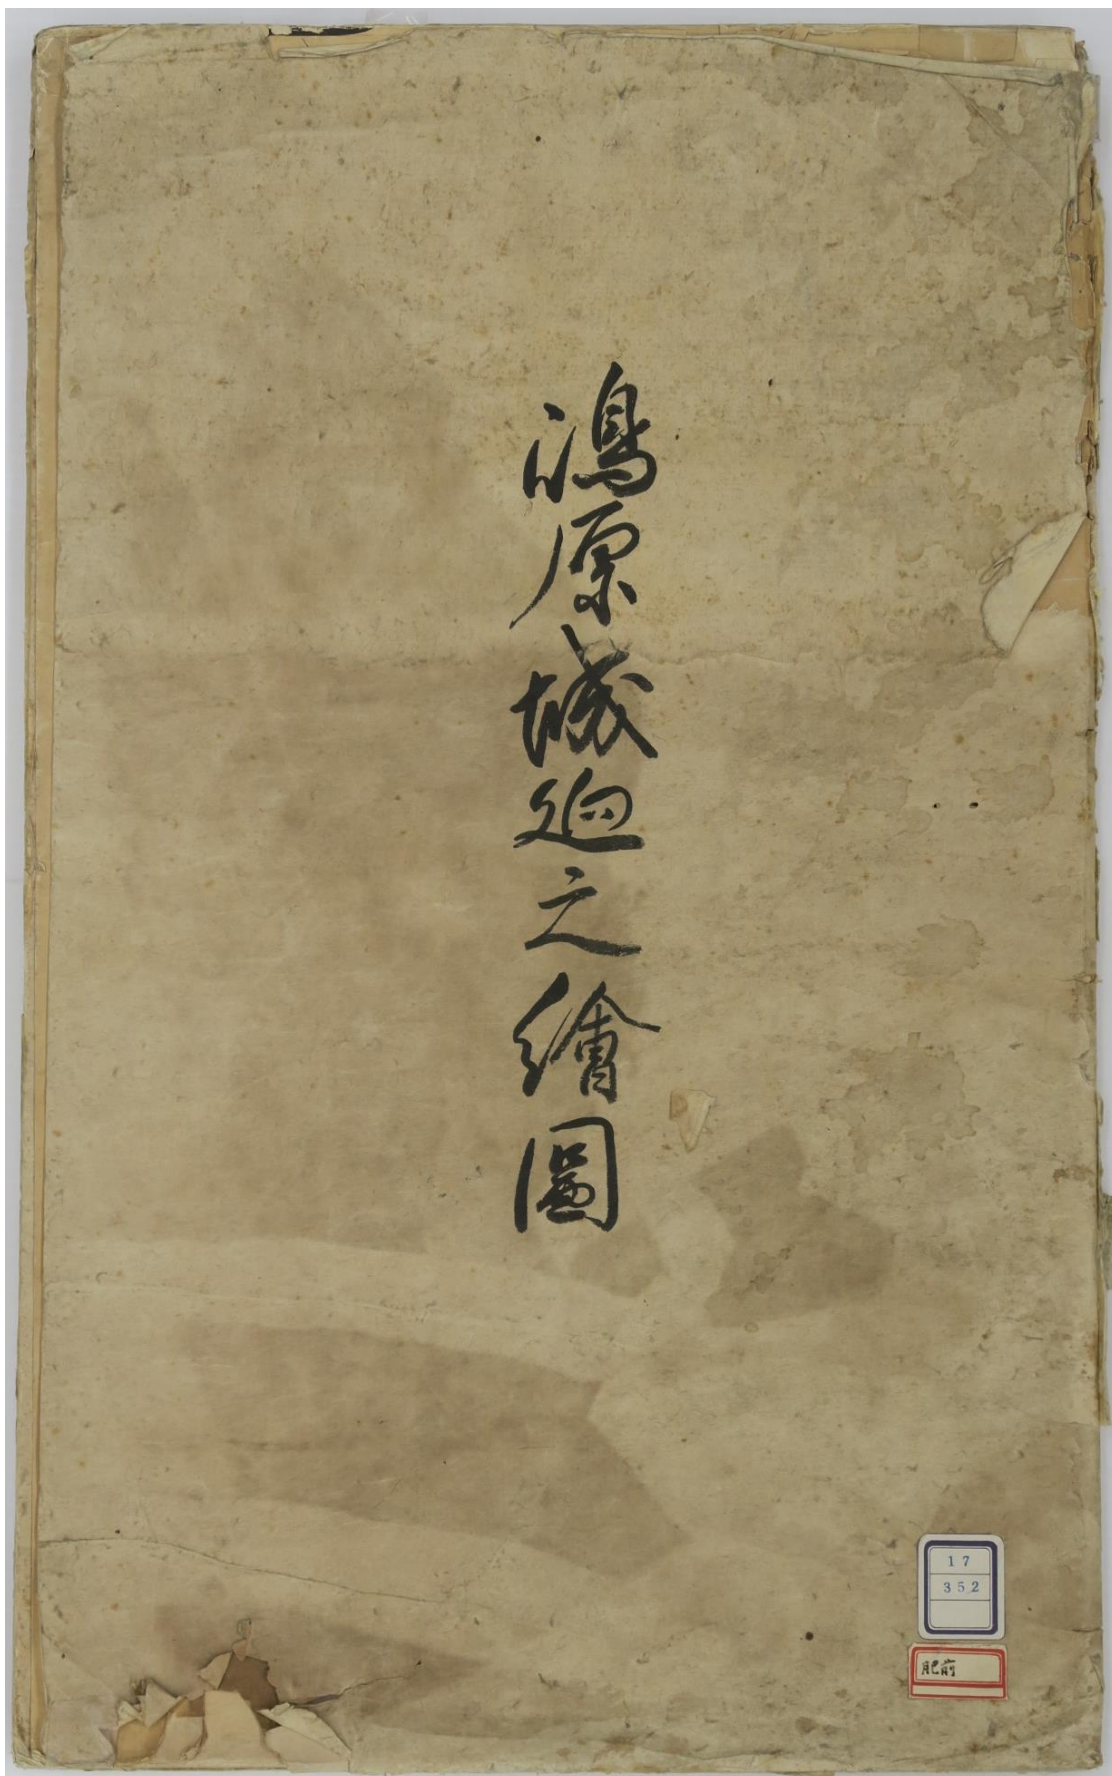 嶋原城廻之繪圖
17
352
肥前